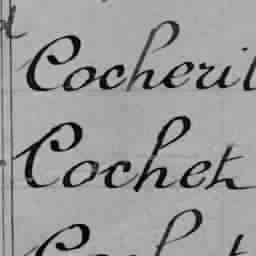 Cocheril
Cochet